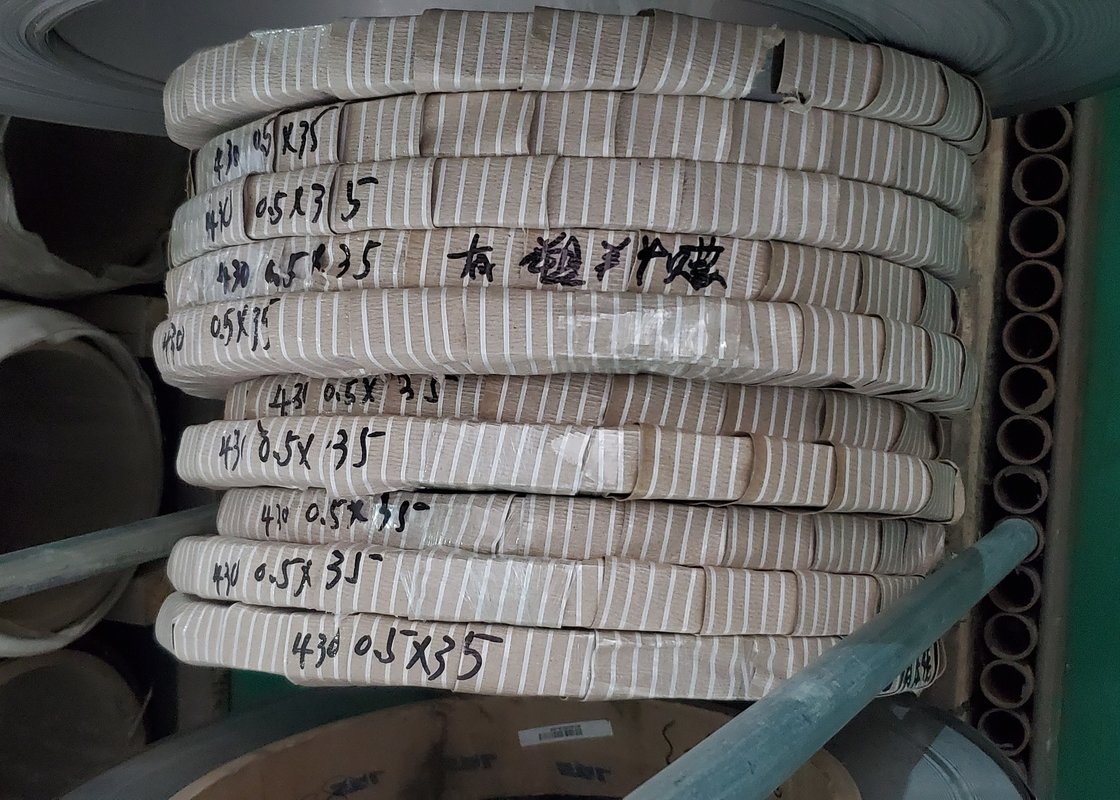 430 0.5X35
430 0.5X35
430 0.5X35 有
430 0.5X35
430 0.5X35
430 0.5X35
430 0.5X35
430 0.5X35
430 0.5X35